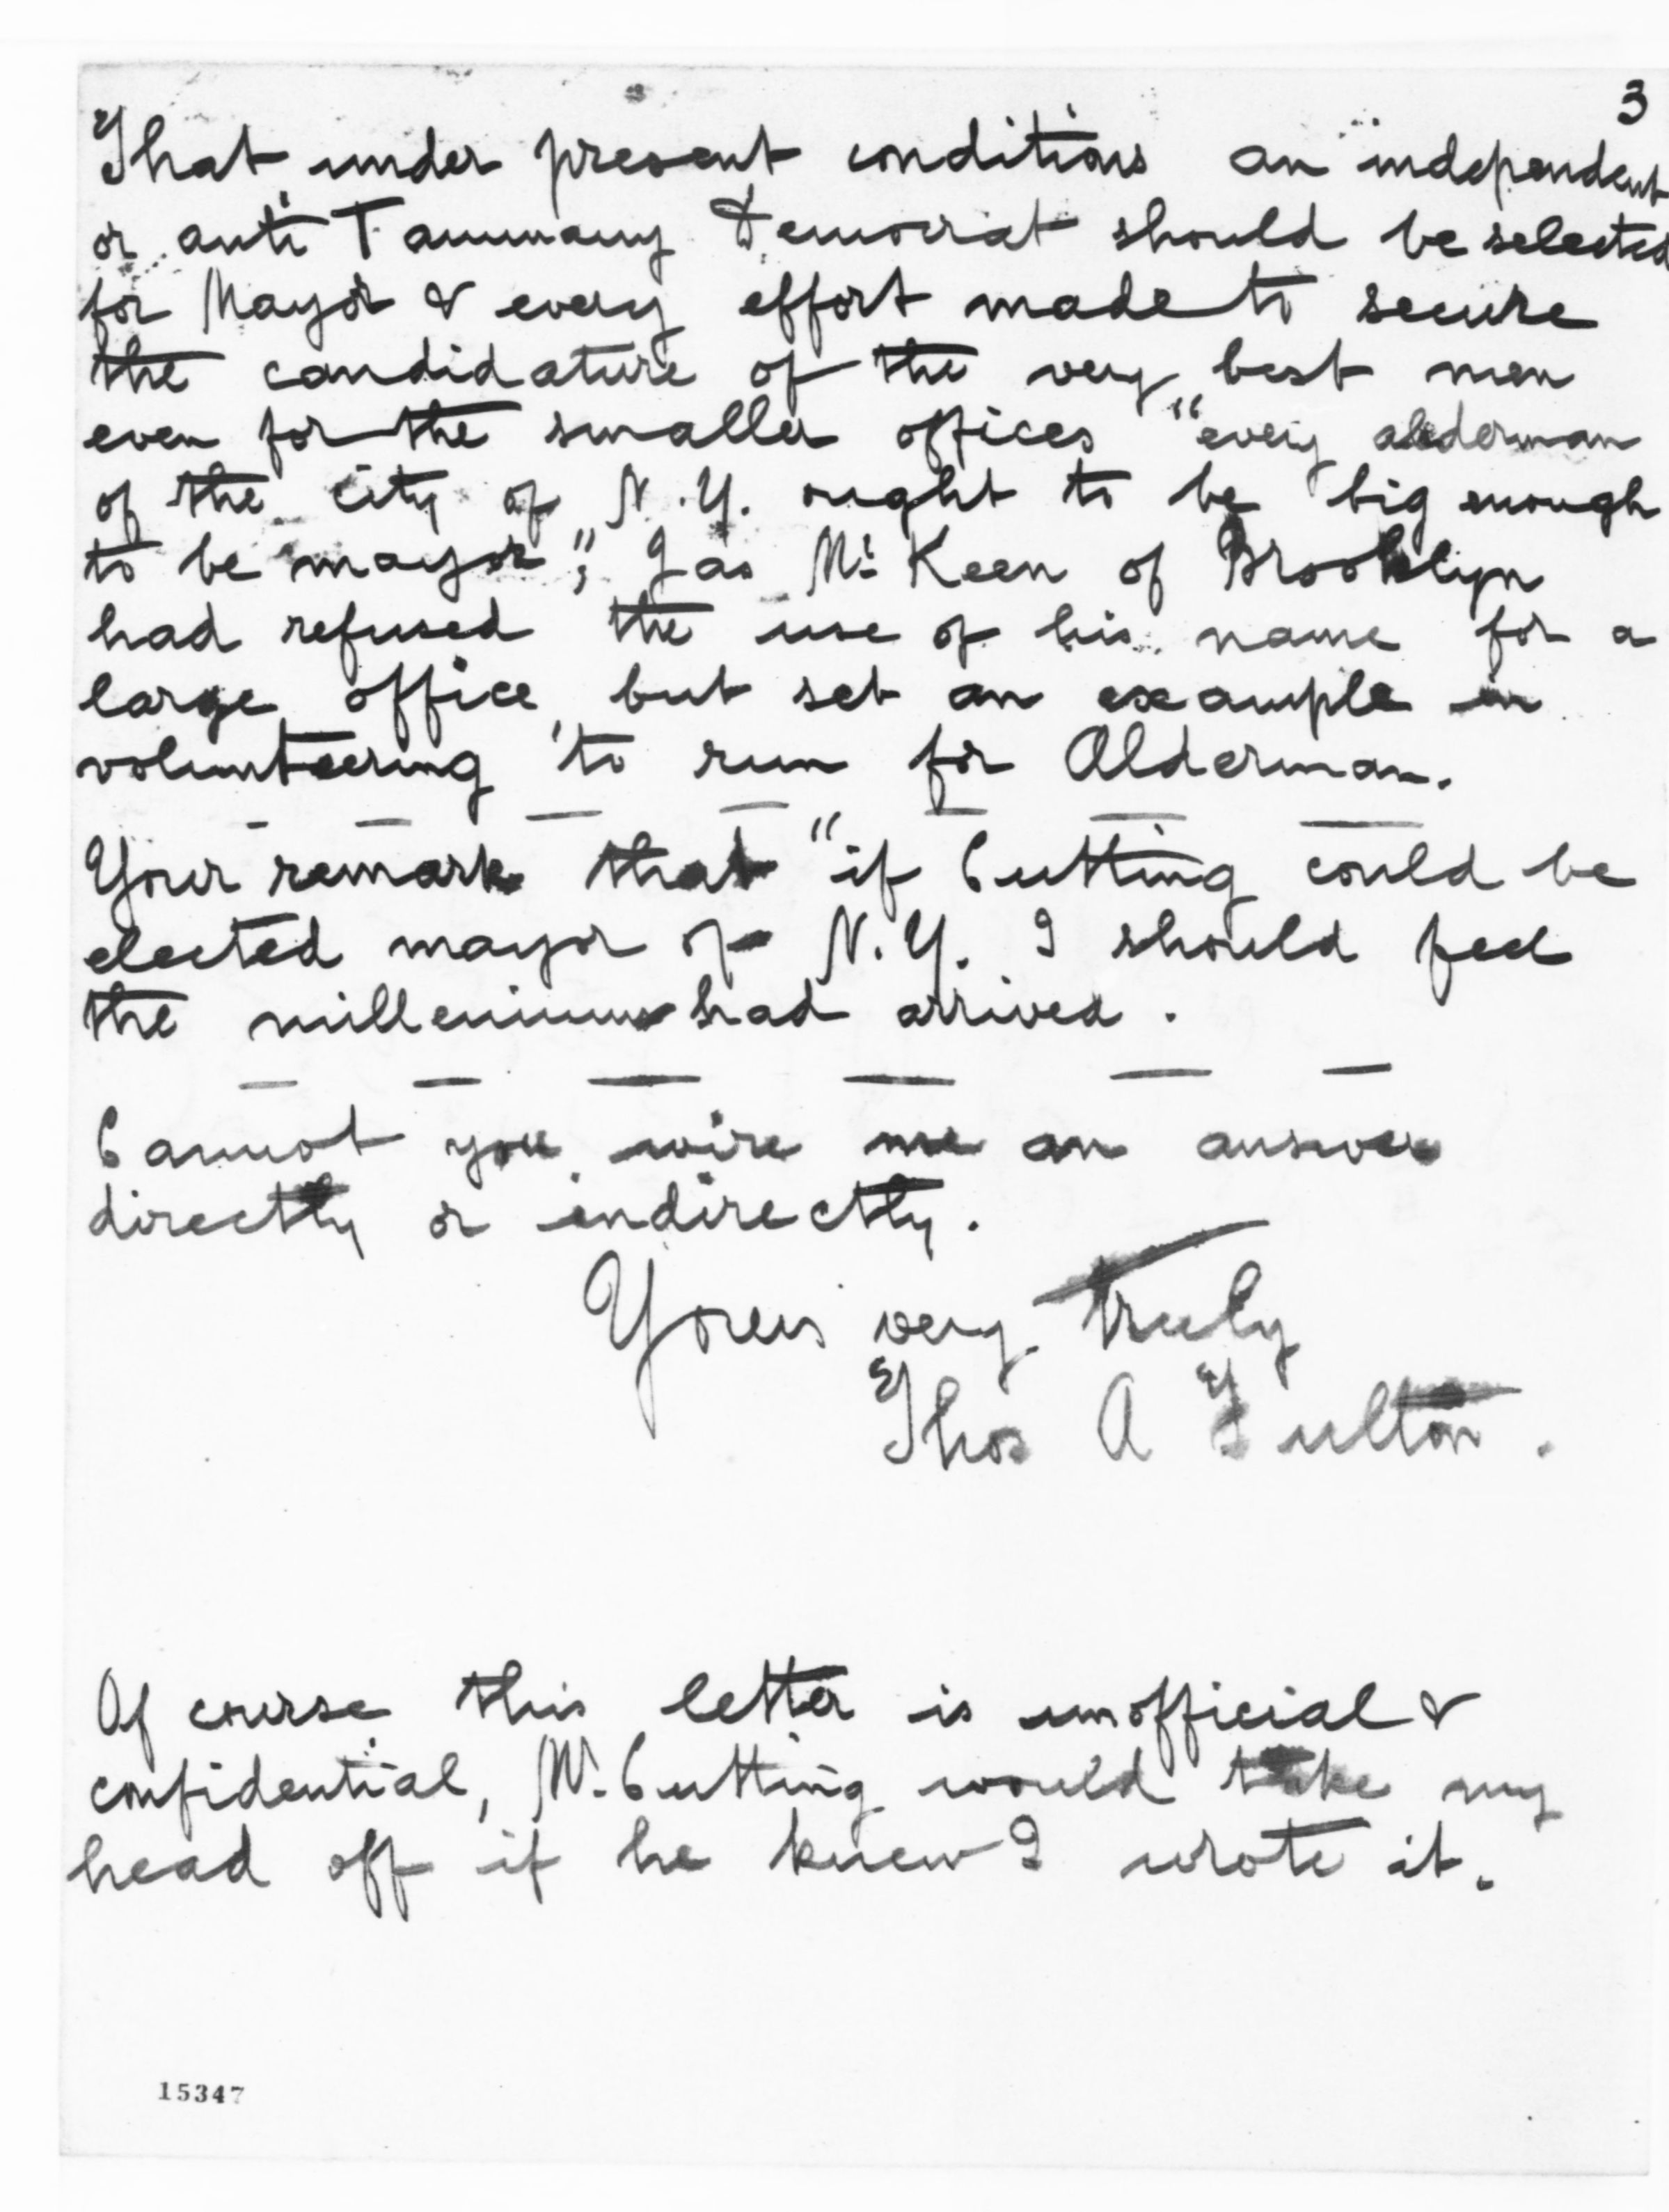 3
That under present conditions an independent
or anti Tammany Democrat should be selected
for Mayor & every effort made to secure
the candidature of the very best men
even for the smaller offices "every alderman
of the city of N.Y. ought to be big enough
to be mayor"; Jas McKeen of Brooklyn
had refused the use of his name for a
large office, but set an example in
volunteering to run for Alderman.
Your remark that "if Cutting could be
elected mayor of N.Y. I should feel
the millenium had arrived.
Cannot you wire me an answer
directly or indirectly.
Yours very truly
Thos A Fulton.
Of course this letter is unofficial &
confidential, Mr. Cutting would take my
head off if he knew I wrote it.
15347